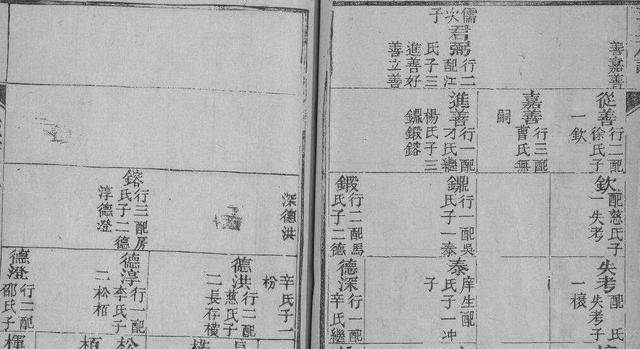 善嘉善
儒次子
君弼行二配江氏子三進善好善立善
從善行二配徐氏子一欽
嘉善行三配曹氏無嗣
進善行一配才氏繼楊氏子三鍛鎔
欽配慈氏子一失考
行一配吳氏子一泰
鍛行二配馬氏子二德
深德洪
鎔行三配房氏子二德淳德澄
失考配氏失考子一檂
泰庠生配氏子一冲子
德深行一配辛氏繼
辛氏子一枌
德洪行二配蕉氏子二長存橫
德淳行一配李氏子二松栢
德澄行二配邵氏子
松
栢